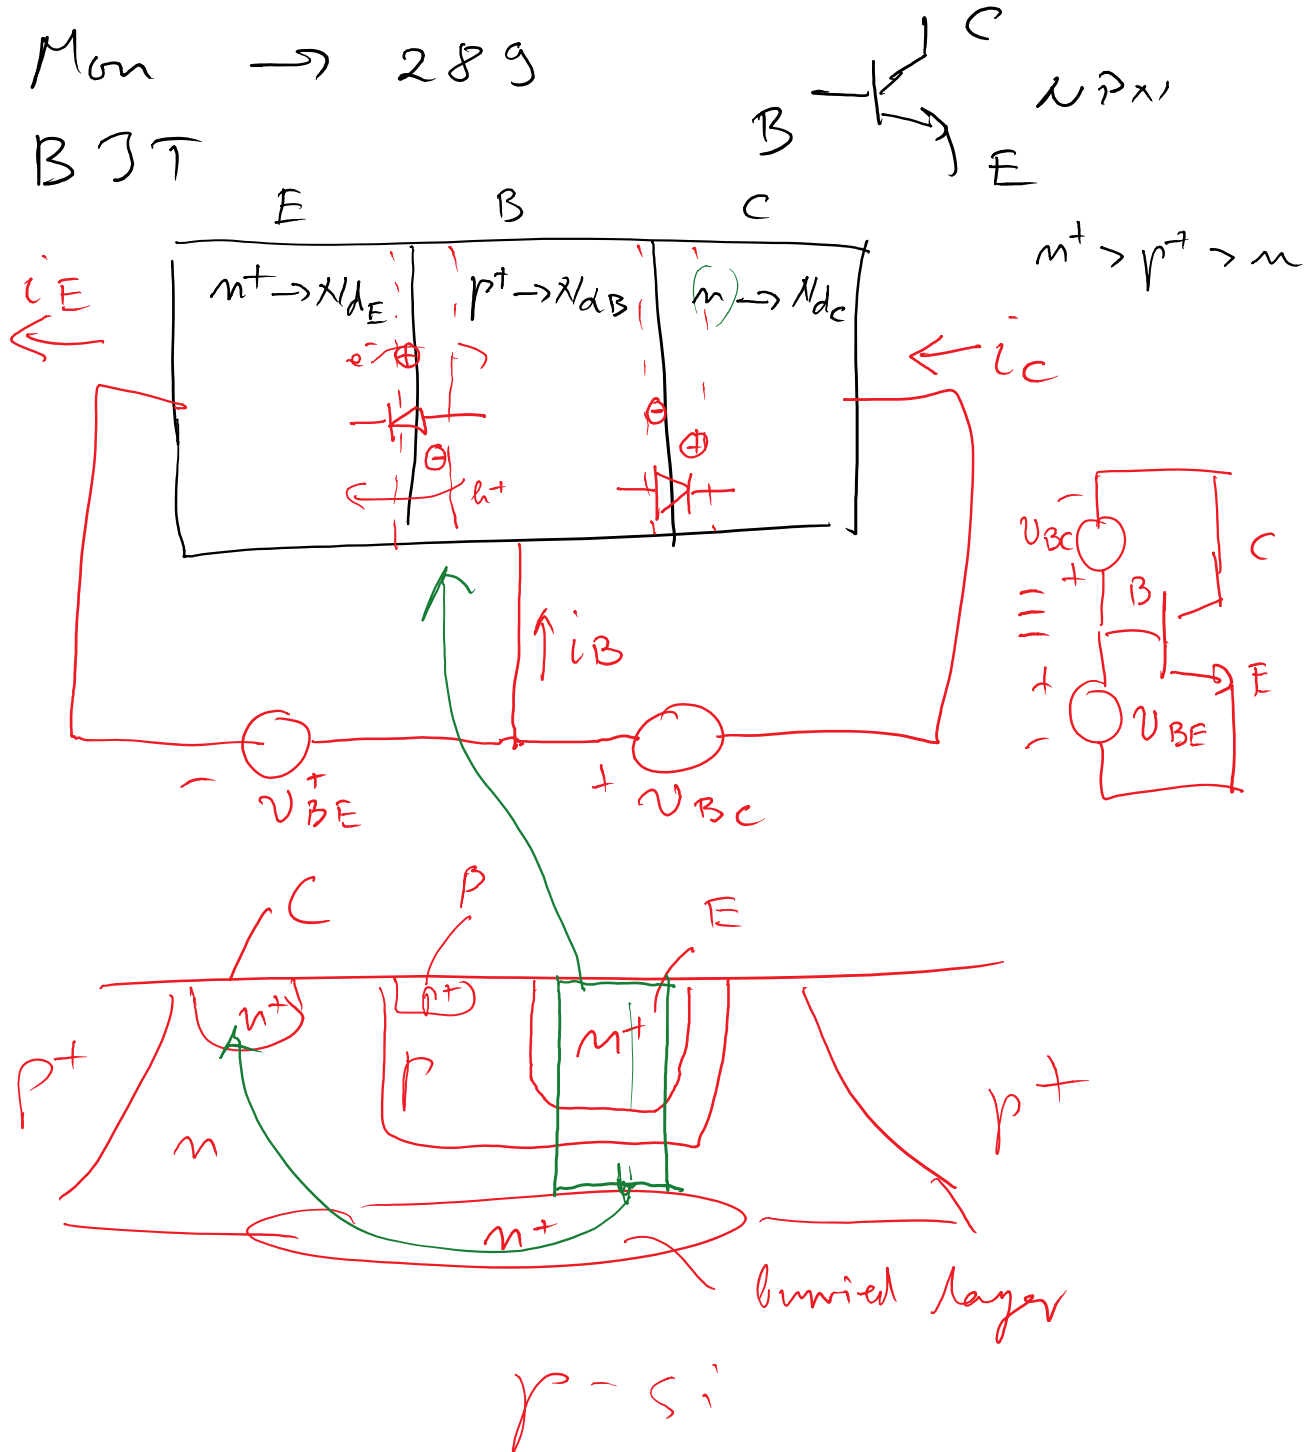 Mon → 289
BJT
C
B
E
NPN
E B C
n⁺ → N_dE
p⁺ → N_aB
n → N_dC
n⁺ > p⁺ > n
i_E
i_C
e⁻ ⊕
⊖
h⁺
⊖
⊕
i_B
− +
V_BE
+
V_BC
−
V_BC
+
B
C
≡
+
−
V_BE
E
C
B
E
n⁺
p⁺
n⁺
p⁺
p
n
p⁺
n⁺
buried layer
p-Si